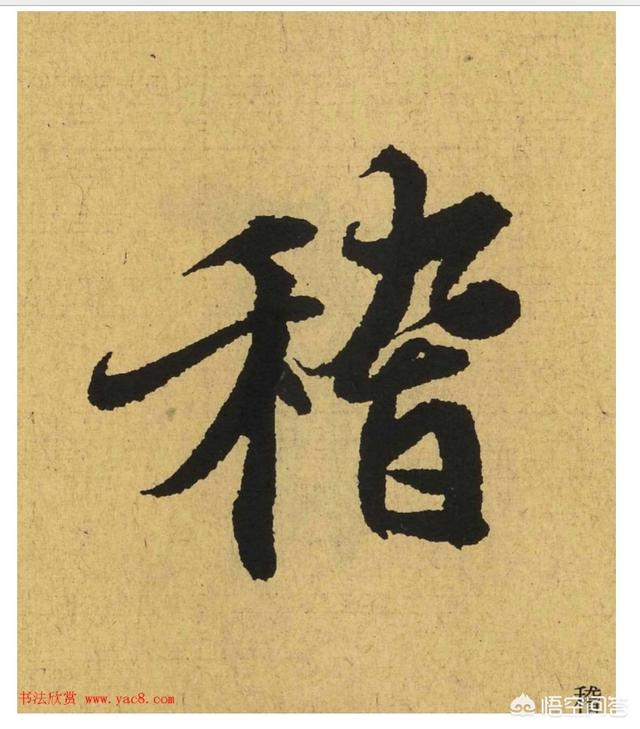 稽
书法欣赏 www.yac8.com
稽
悟空问答